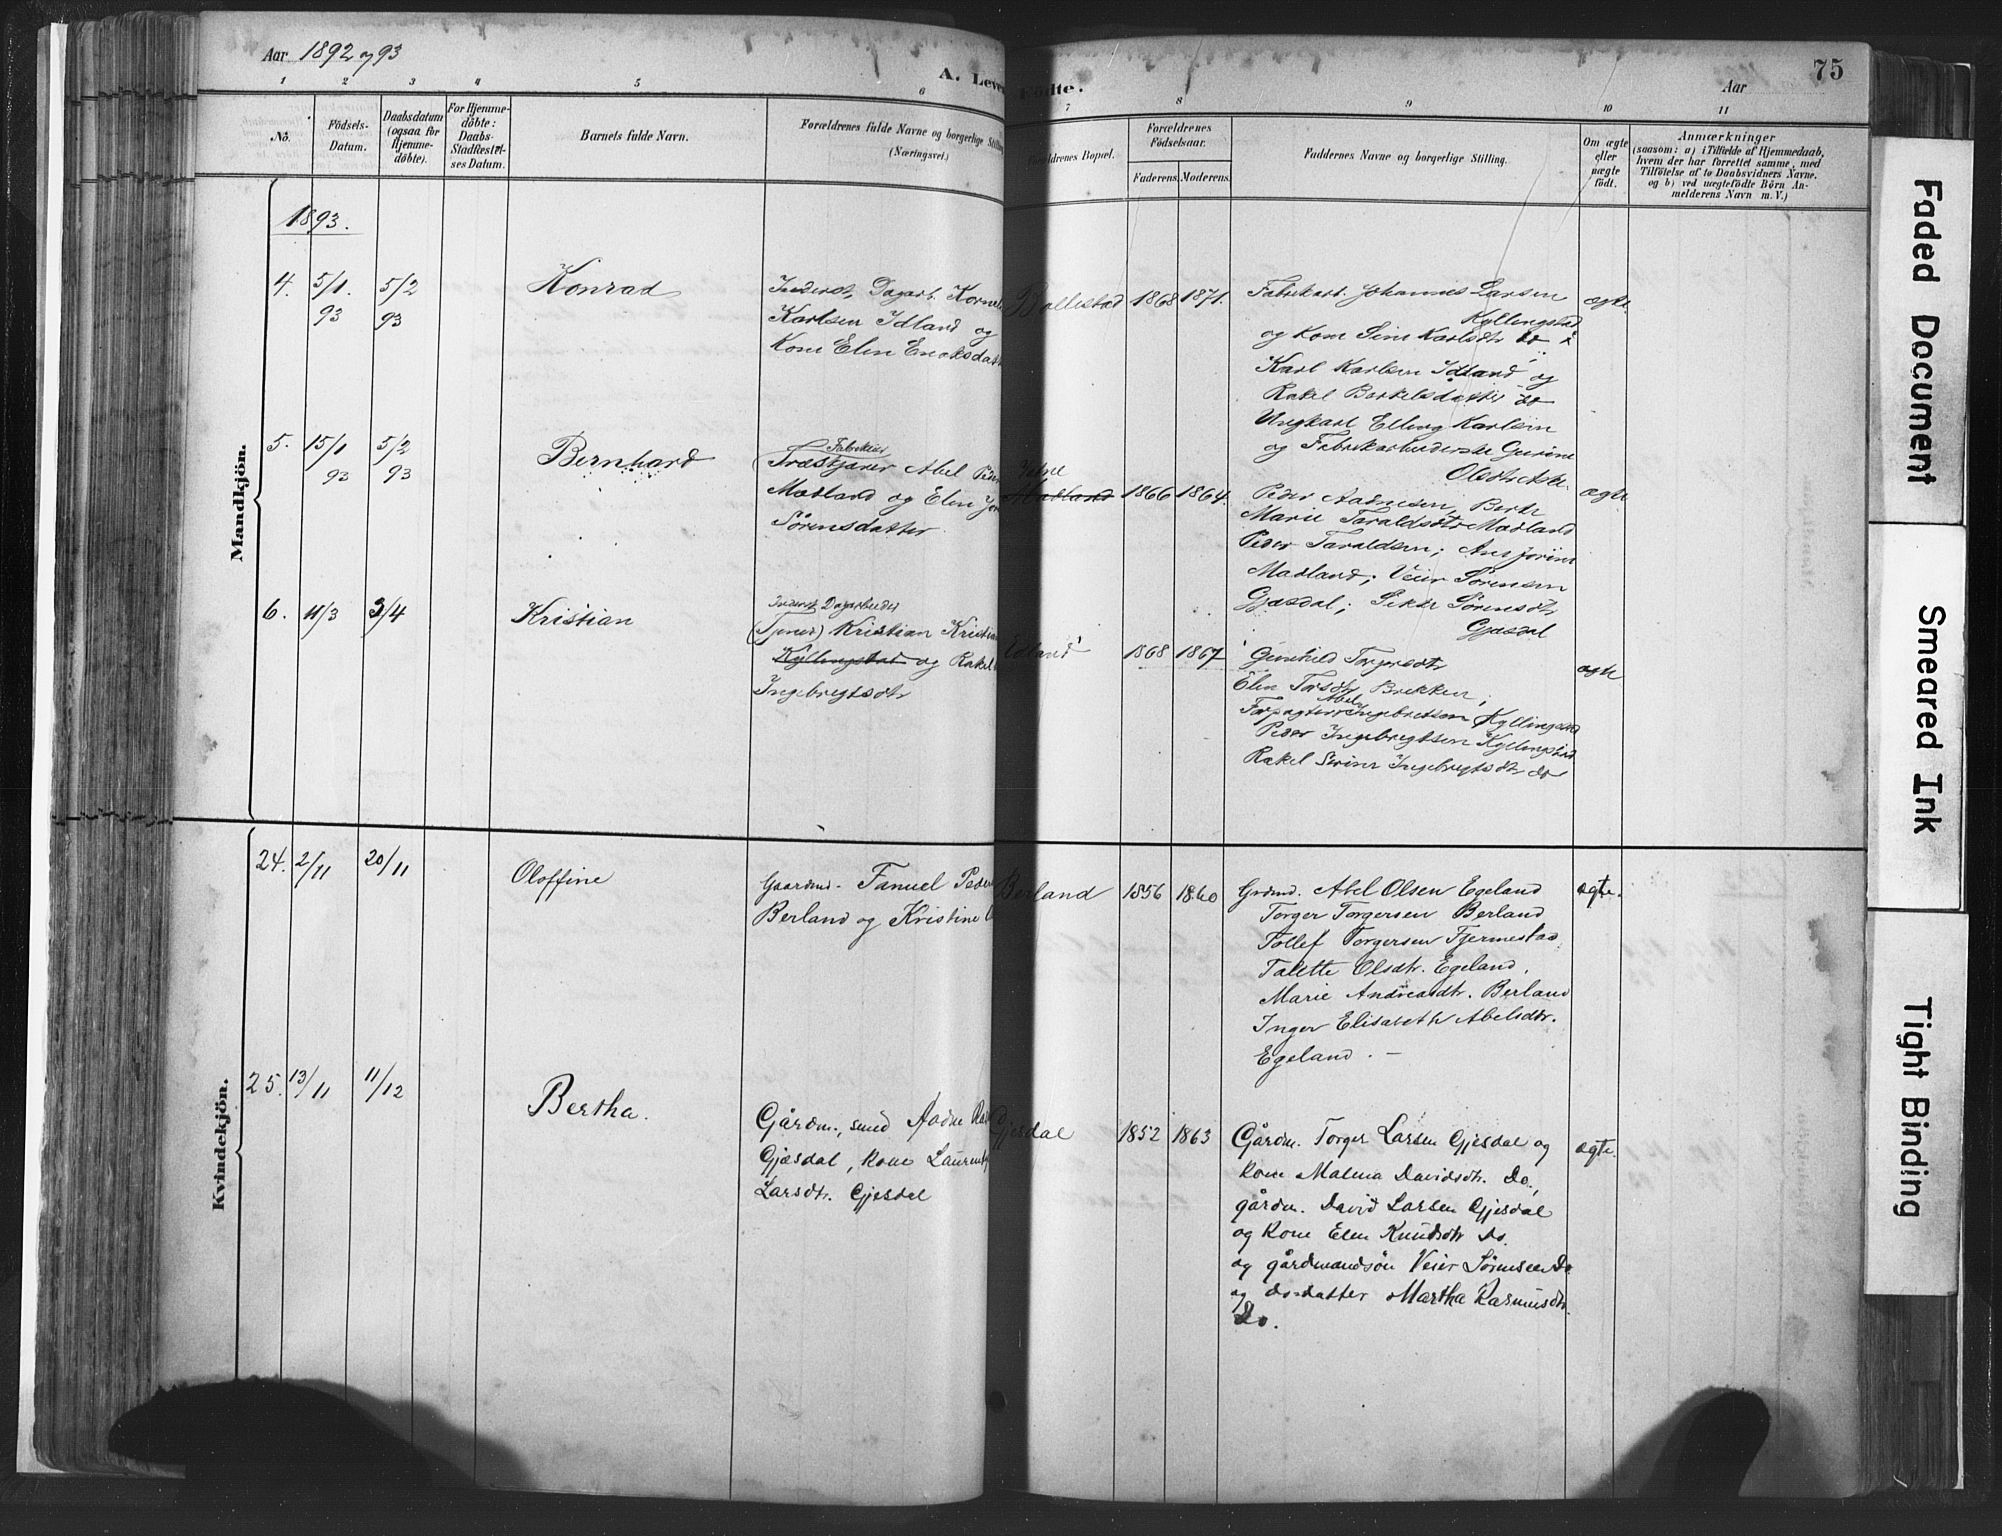 Aar 1892 og 93
A. Leve
Födte.
Aar
75
1 2 3 4 5 6 7 8 9 10 11
No.
Födsels-
Datum.
Daabsdatum
(ogsaa for
Hjemme-
döbte).
For Hjemme-
döbte:
Daabs-
Stadfæstel-
ses Datum.
Barnets fulde Navn.
Forældrenes fulde Navne og borgerlige Stilling
(Næringsvei.)
Forældrenes Bopæl.
Forældrenes
Födselsaar.
Faderens. Moderens.
Faddernes Navne og borgerlige Stilling.
Om ægte
eller
uægte
födt.
Anmærkninger
(saasom: a) i Tilfælde af Hjemmedaab,
hvem der har forrettet samme, med
Tilföielse af to Daabsvidners Navne.
og b) ved uægtefödte Börn An-
melderens Navn m. V.)
Mandkjön.
1893.
4. 5/1. 93
5/2 93
Konrad
Inderst, Dagarb. Korneli
Karlsen Idland og
Kone Elen Enoksdatt
Bollestad
1868 1871.
Fabrikarb. Johannes Larsen
Kyllingstad
og Kone Sine Karlsdtr do
Karl Karlsen Idland og
Rakel Berkelsdatter do
Ungkarl Elling Karlsen
og Fabrikarbeiderske Gurine
ægte
5. 15/1 93
5/2 93
Bernhard
Fabrikeier
(Træskjærer Abel Peder
Madland og Elen Jo
Sörensdatter
Madland
1866 1864.
Peder Aadnesen, Berte
Marie Taraldsdtr Madland
Peder Taraldsen; Ane Jorine
Madland; Veier Sörensen
Gjæsdal; Sörensdtr
Gjæsdal
ægte
6. 11/3
3/4
Kristian
Inderst Dagarbeider
(Tjener) Kristian Kristian
Kyllingstad og Rakel
Ingebregtsdtr
Edland
1868 1867
Gunhild Torgersdtr
Elen Torsdtr Brekken;
Abel
Forpagter Ingebretsen Kyllingstad
Peder Ingebregtsen Kyllingstad
Rakel Serine Ingebregtsdtr do
ægte
Kvindekjön.
24. 2/11
20/11
Oloffine
Gaardmd. Fanuel Peder
Berland og Kristine O
Berland
1856 1860
Grdmd. Abel Olsen Egeland
Torger Torgersen Berland
Tollef Torgersen Fjermestad
Talette Olsdtr. Egeland.
Marie Andreasdtr. Berland
Inger Elisabeth Abelsdtr.
Egeland. —
ægte.
25. 13/11
11/12
Bertha.
Gårdm., smed Aadne Ras
Gjæsdal, kone Laurent
Larsdtr. Gjesdal
Gjesdal
1852 1863
Gårdm. Torger Larsen Gjesdal og
kone Malena Davidsdtr. Do,
gårdm. David Larsen Gjesdal
og kone Elen Knudsdtr Do.
og gårdmandsön Veier Sörensen Do.
og do-datter Martha Rasmusdtr.
Do.
ægte.
Faded Document
Smeared Ink
Tight Binding